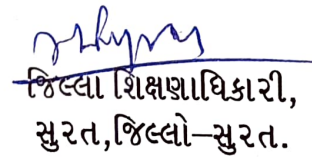 જિલ્લા શિક્ષણાધિકારી,
સુરત,જિલ્લો–સુરત.